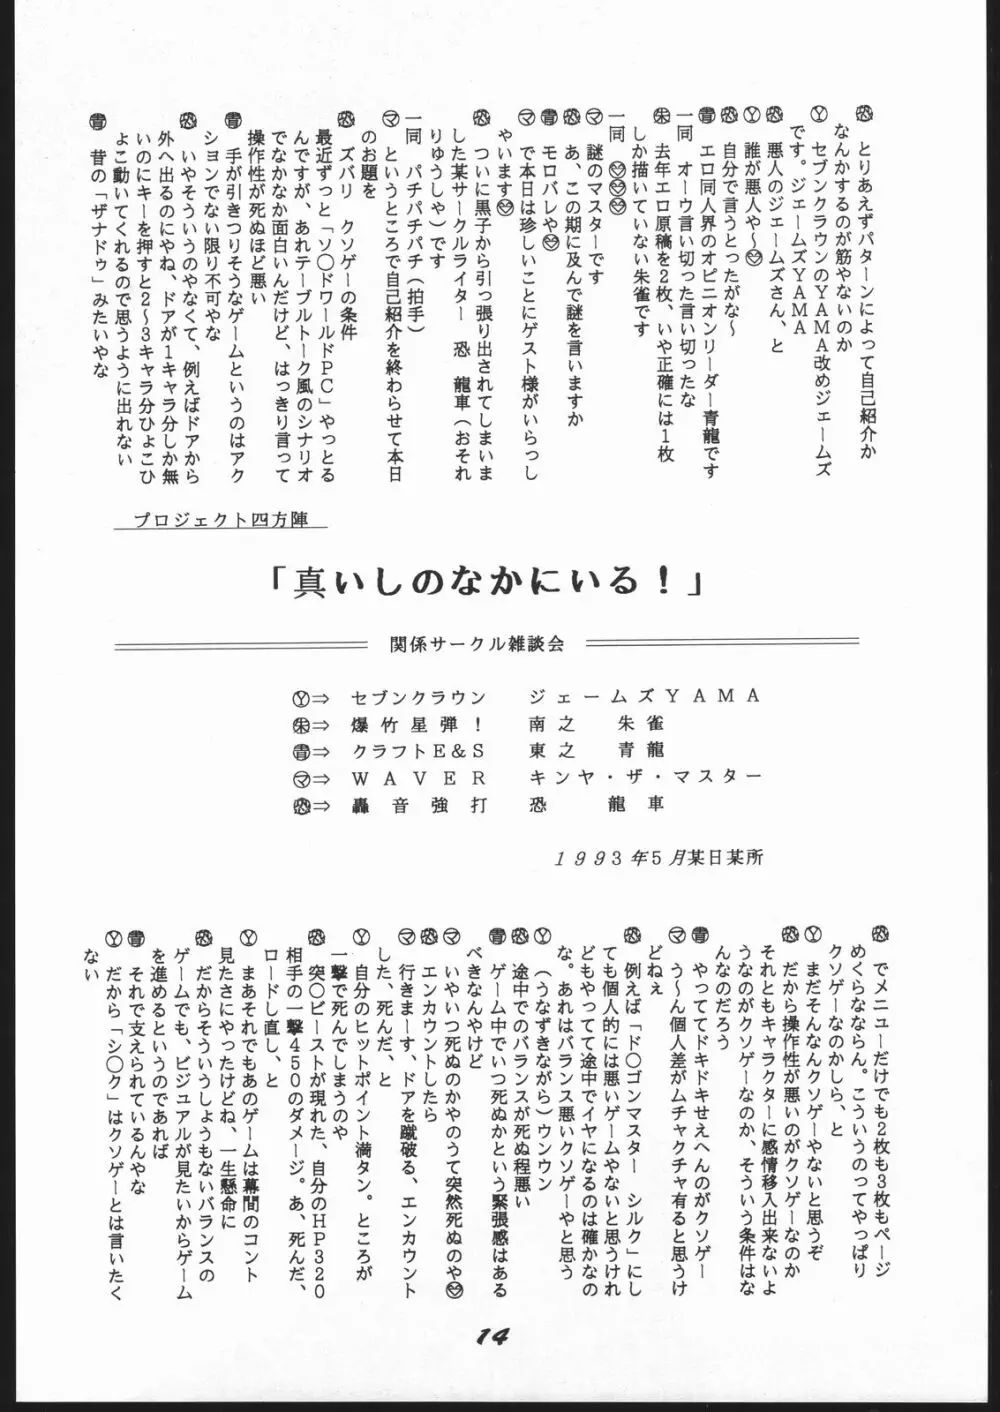 ㋾ とりあえずパターンによって自己紹介か
なんかするのが筋やないのか
Ⓨ セブンクラウンのYAMA改めジェームズ
です。ジェームズYAMA
恐 悪人のジェームズさん、と
Ⓨ 誰が悪人や〜
恐 自分で言うとったがな〜
青 エロ同人界のオピニオンリーダー青龍です
一同 オーウ言い切った言い切ったな
朱 去年エロ原稿を2枚、いや正確には1枚
しか描いていない朱雀です
一同
マ 謎のマスターです
恐 あ、この期に及んで謎を言いますか
青 モロバレや
マ で本日は珍しいことにゲスト様がいらっし
ゃいます
恐 ついに黒子から引っ張り出されてしまいま
した某サークルライター 恐 龍車(おそれ
りゅうしゃ)です
一同 パチパチパチ(拍手)
マ というところで自己紹介を終わらせて本日
のお題を
恐 ズバリ クソゲーの条件
最近ずっと「ソ〇ドワールドPC」やっとる
んですが、あれテーブルトーク風のシナリオ
でなかなか面白いんだけど、はっきり言って
操作性が死ぬほど悪い
青 手が引きつりそうなゲームというのはアク
ションでない限り不可やな
恐 いやそういうのやなくて、例えばドアから
外へ出るのにやね、ドアが1キャラ分しか無
いのにキーを押すと2〜3キャラ分ひょこひ
ょこ動いてくれるので思うように出れない
青 昔の「ザナドゥ」みたいやな
プロジェクト四方陣
「真いしのなかにいる!」
関係サークル雑談会
Ⓨ⇒ セブンクラウン ジェームズYAMA
朱⇒ 爆竹星弾! 南之 朱雀
青⇒ クラフトE&S 東之 青龍
マ⇒ WAVER キンヤ・ザ・マスター
恐⇒ 轟音強打 恐 龍車
1993年5月某日某所
恐 でメニューだけでも2枚も3枚もページ
めくらなならん。こういうのってやっぱり
クソゲーなのかしら、と
Ⓨ まだそんなんクソゲーやないと思うぞ
恐 だから操作性が悪いのがクソゲーなのか
それともキャラクターに感情移入出来ないよ
うなのがクソゲーなのか、そういう条件はな
んなのだろう
青 やっててドキドキせえへんのがクソゲー
マ う〜ん個人差がムチャクチャ有ると思うけ
どねぇ
恐 例えば「ド〇ゴンマスター シルク」にし
ても個人的には悪いゲームやないと思うけれ
どもやってて途中でイヤになるのは確かなの
な。あれはバランス悪いクソゲーやと思う
Ⓨ (うなずきながら)ウンウン
恐 途中でのバランスが死ぬ程悪い
青 ゲーム中でいつ死ぬかという緊張感はある
べきなんやけど
マ いやいつ死ぬのかやのうて突然死ぬのや
恐 エンカウントしたら
マ 行きまーす、ドアを蹴破る、エンカウント
した、死んだ、と
Ⓨ 自分のヒットポイント満タン。ところが
一撃で死んでしまうのや
恐 突〇ビーストが現れた、自分のHP320
相手の一撃450のダメージ。あ、死んだ、
ロードし直し、と
Ⓨ まあそれでもあのゲームは幕間のコント
見たさにやったけどね、一生懸命に
恐 だからそういうしょうもないバランスの
ゲームでも、ビジュアルが見たいからゲーム
を進めるというのであれば
青 それで支えられているんやな
Ⓨ だから「シ〇ク」はクソゲーとは言いたく
ない
14